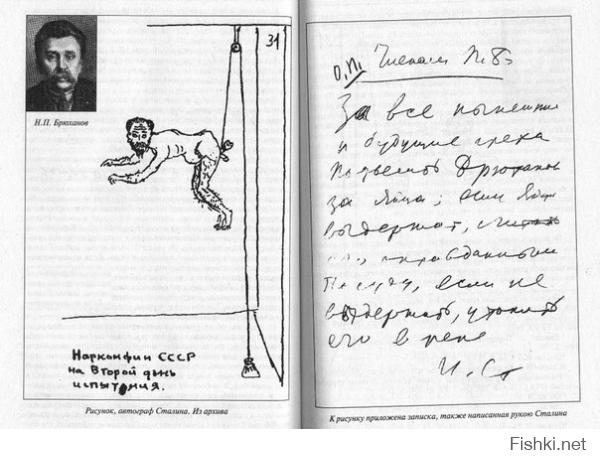 Н.П. Брюханов
31
Наркомфин СССР
на Второй день
испытания.
Рисунок, автограф Сталина. Из архива
Членам П.Б.
За все нынешни
и будущие грехи
Подвесить Брюханов
за яйца; если яйца
выдержат, считать
оправданным
По суду, если не
выдержат, утопить
его в реке
И. Ст
К рисунку приложена записка, также написанная рукою Сталина
Fishki.net